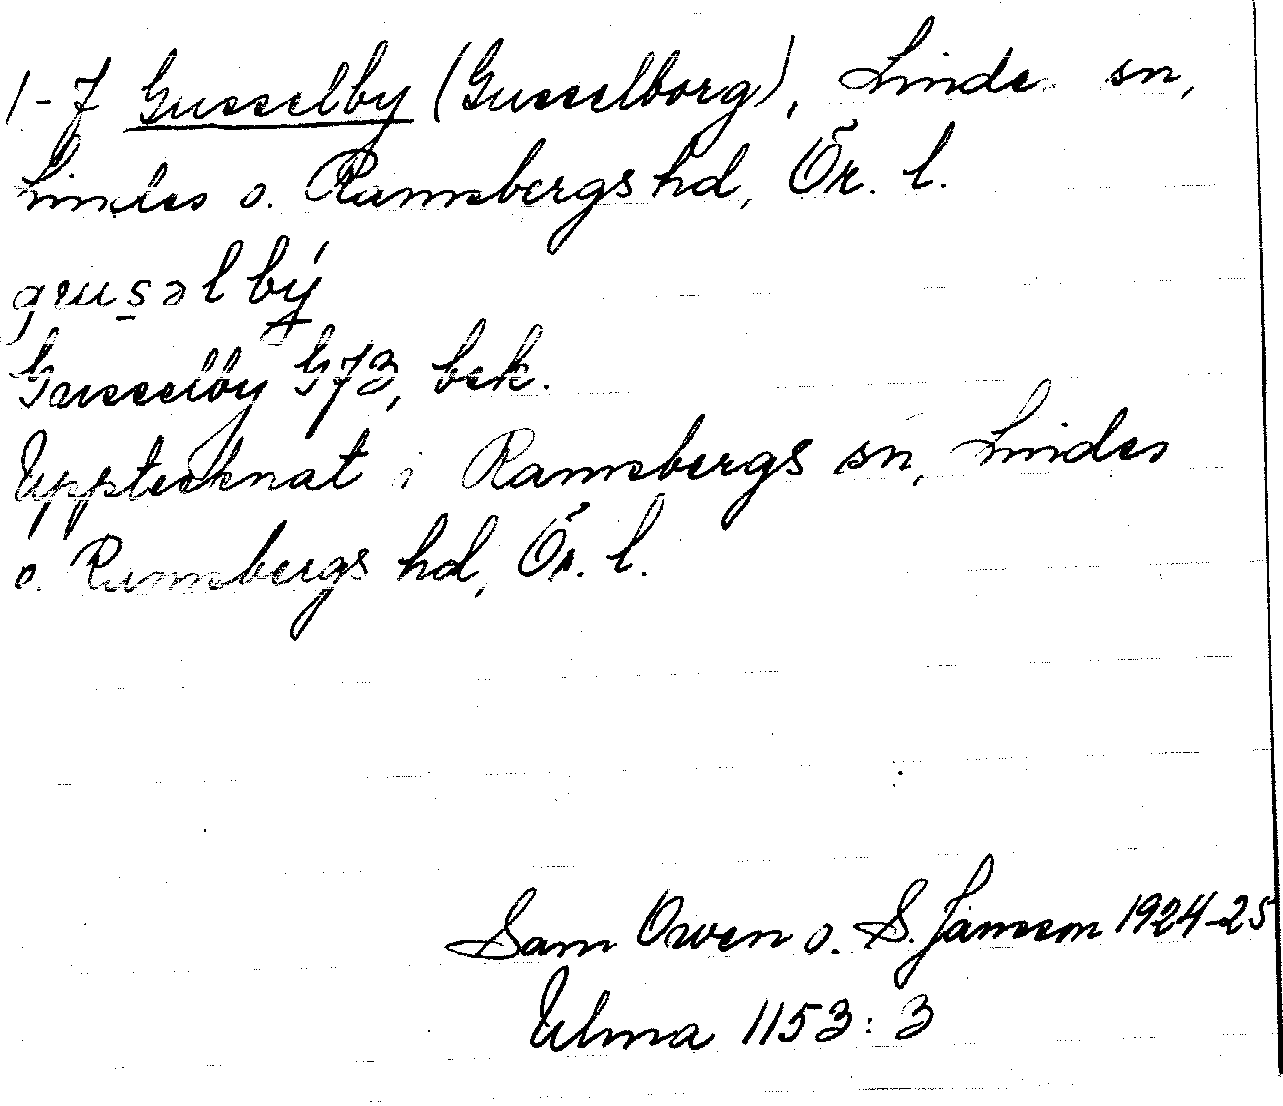 1-7 Gusselby (Gusselborg), Linde sn,
Lindes o. Ramsbergs hd, Ör. l.
Gusselby G73, bek.
Upptecknat i Ramsbergs sn, Lindes
o. Ramsbergs hd, Ör. l.
Sam Owen o. S. Jansson 1924-25
Ulma 1153:3